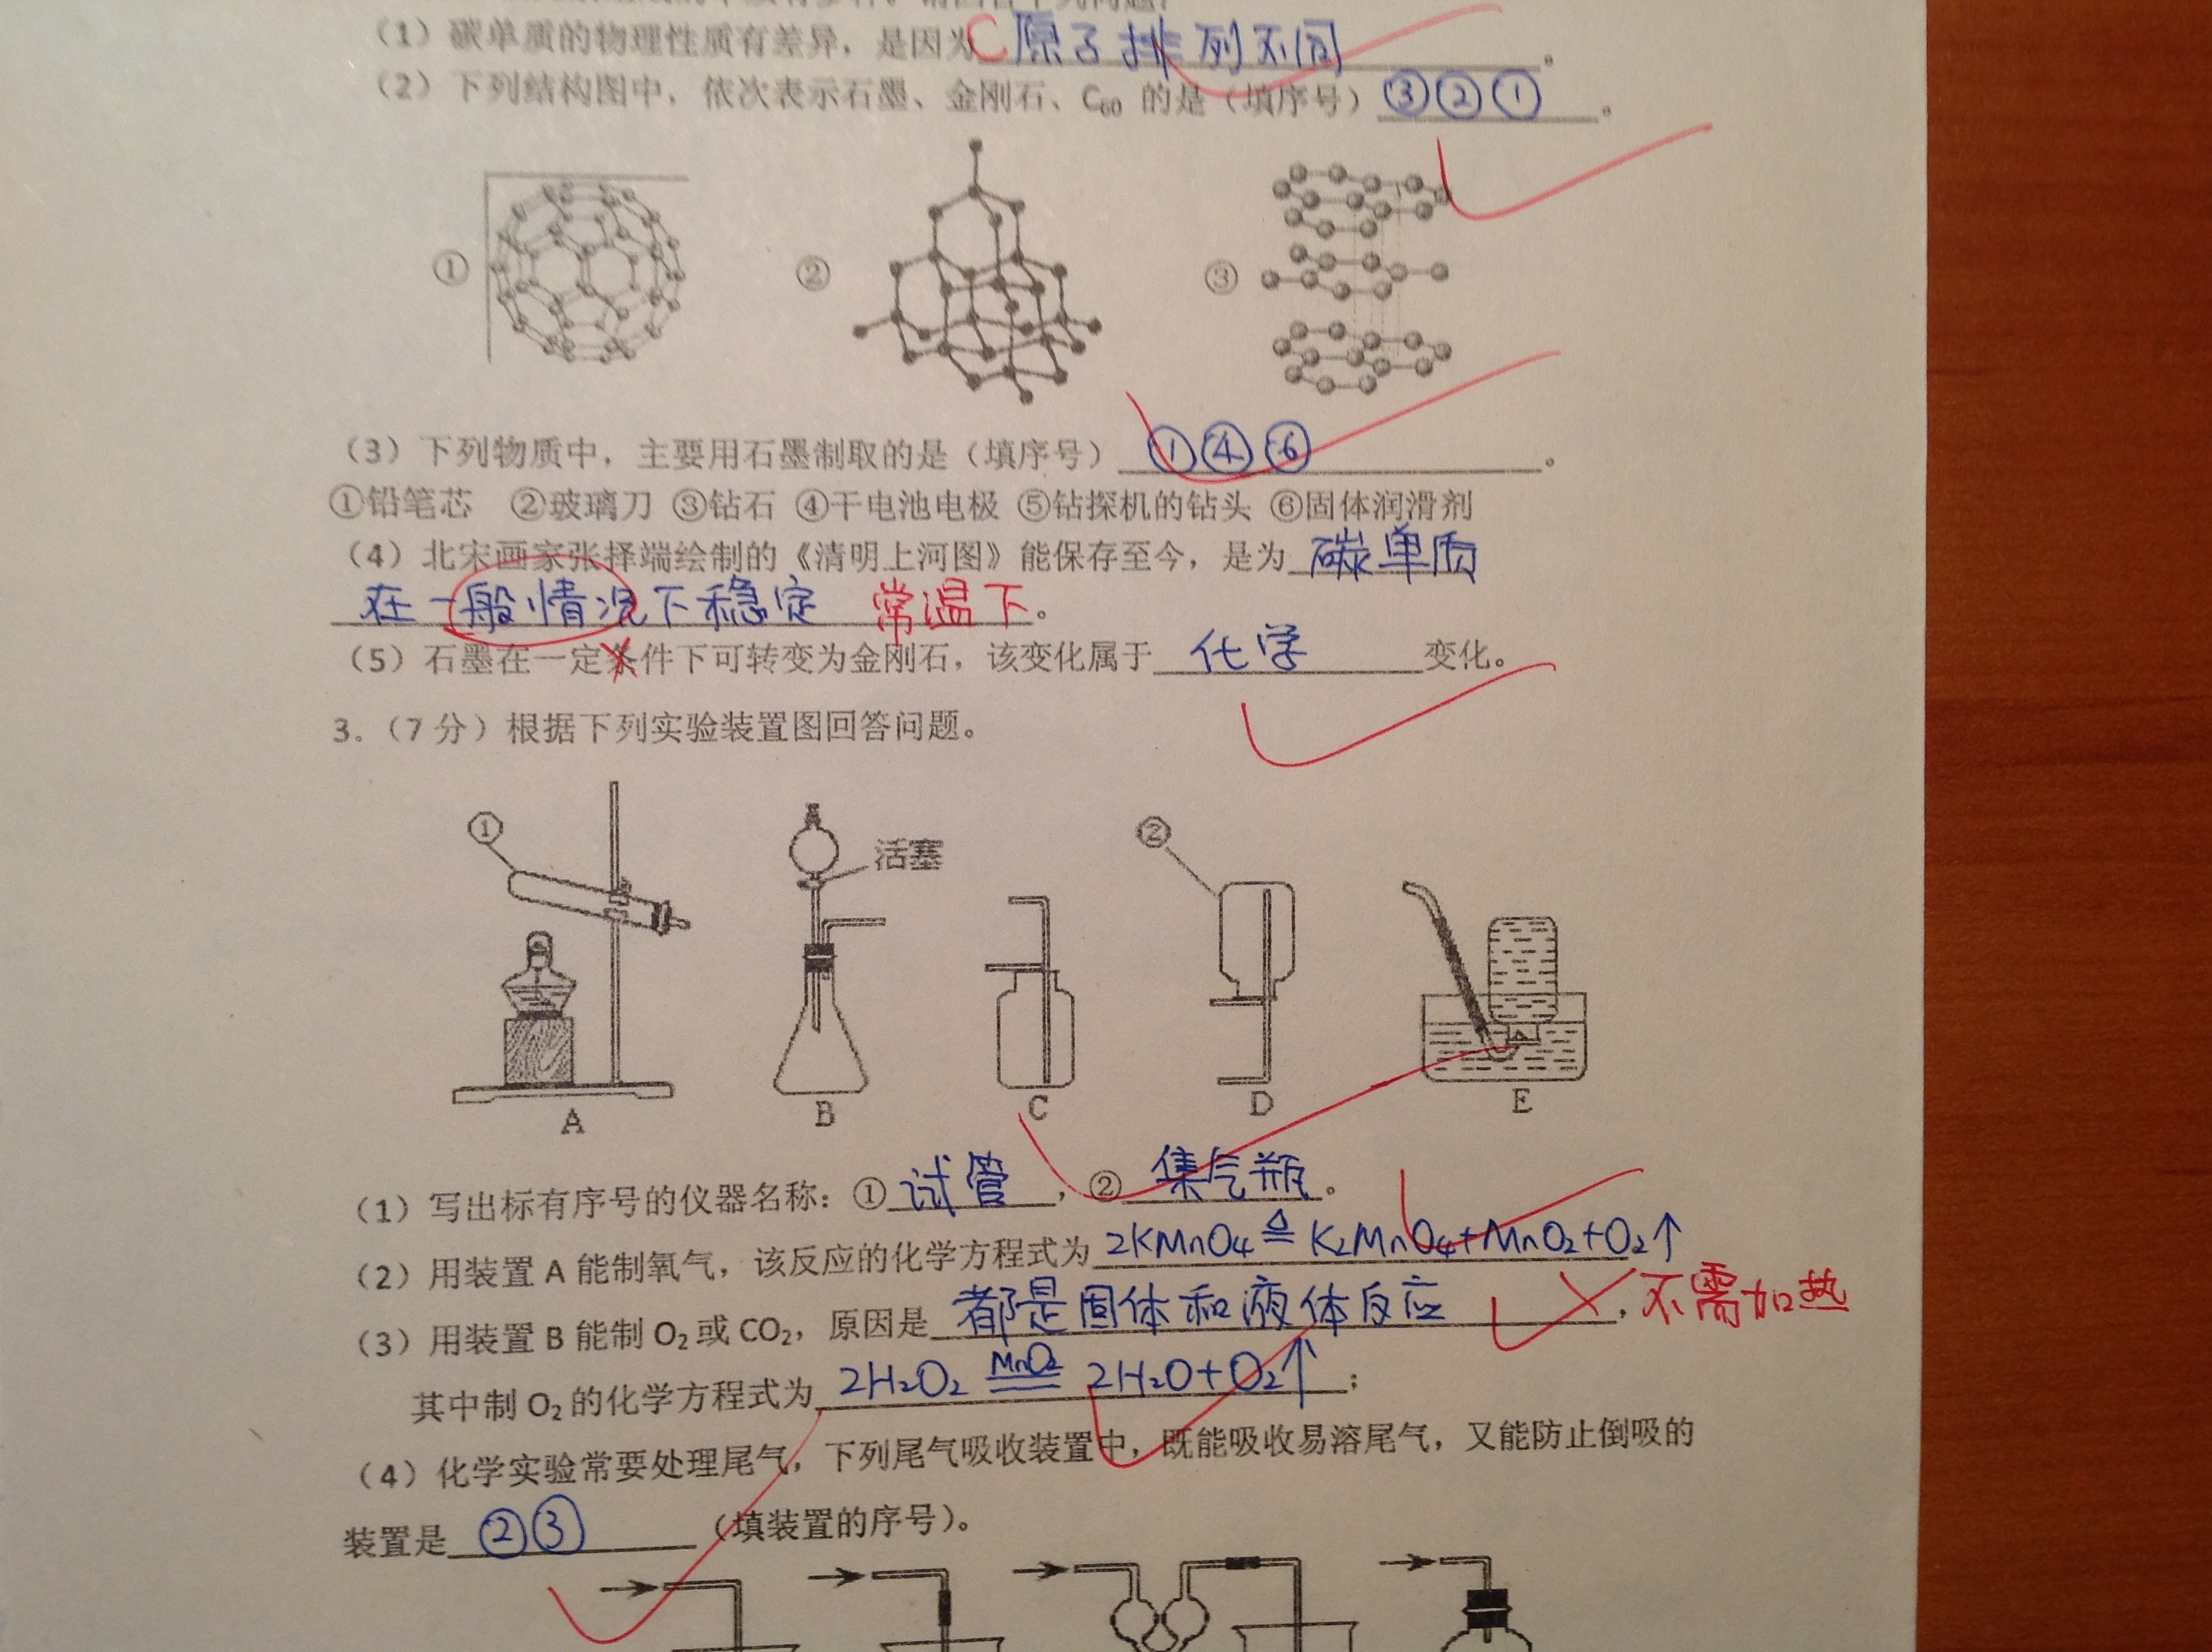 (1) 碳单质的物理性质有差异，是因为C原子排列不同。
(2) 下列结构图中，依次表示石墨、金刚石、C₆₀ 的是（填序号）③②①。
① ② ③
(3) 下列物质中，主要用石墨制取的是（填序号）①④⑥。
①铅笔芯 ②玻璃刀 ③钻石 ④干电池电极 ⑤钻探机的钻头 ⑥固体润滑剂
(4) 北宋画家张择端绘制的《清明上河图》能保存至今，是为碳单质
在一般情况下稳定 常温下。
(5) 石墨在一定条件下可转变为金刚石，该变化属于化学变化。
3.（7 分）根据下列实验装置图回答问题。
① 活塞 ②
A B C D E
(1) 写出标有序号的仪器名称：①试管，②集气瓶。
(2) 用装置 A 能制氧气，该反应的化学方程式为2KMnO₄ ≜ K₂MnO₄+MnO₂+O₂↑
(3) 用装置 B 能制 O₂ 或 CO₂，原因是都是固体和液体反应，不需加热
其中制 O₂ 的化学方程式为2H₂O₂ MnO₂ == 2H₂O+O₂↑；
(4) 化学实验常要处理尾气，下列尾气吸收装置中，既能吸收易溶尾气，又能防止倒吸的
装置是②③（填装置的序号）。